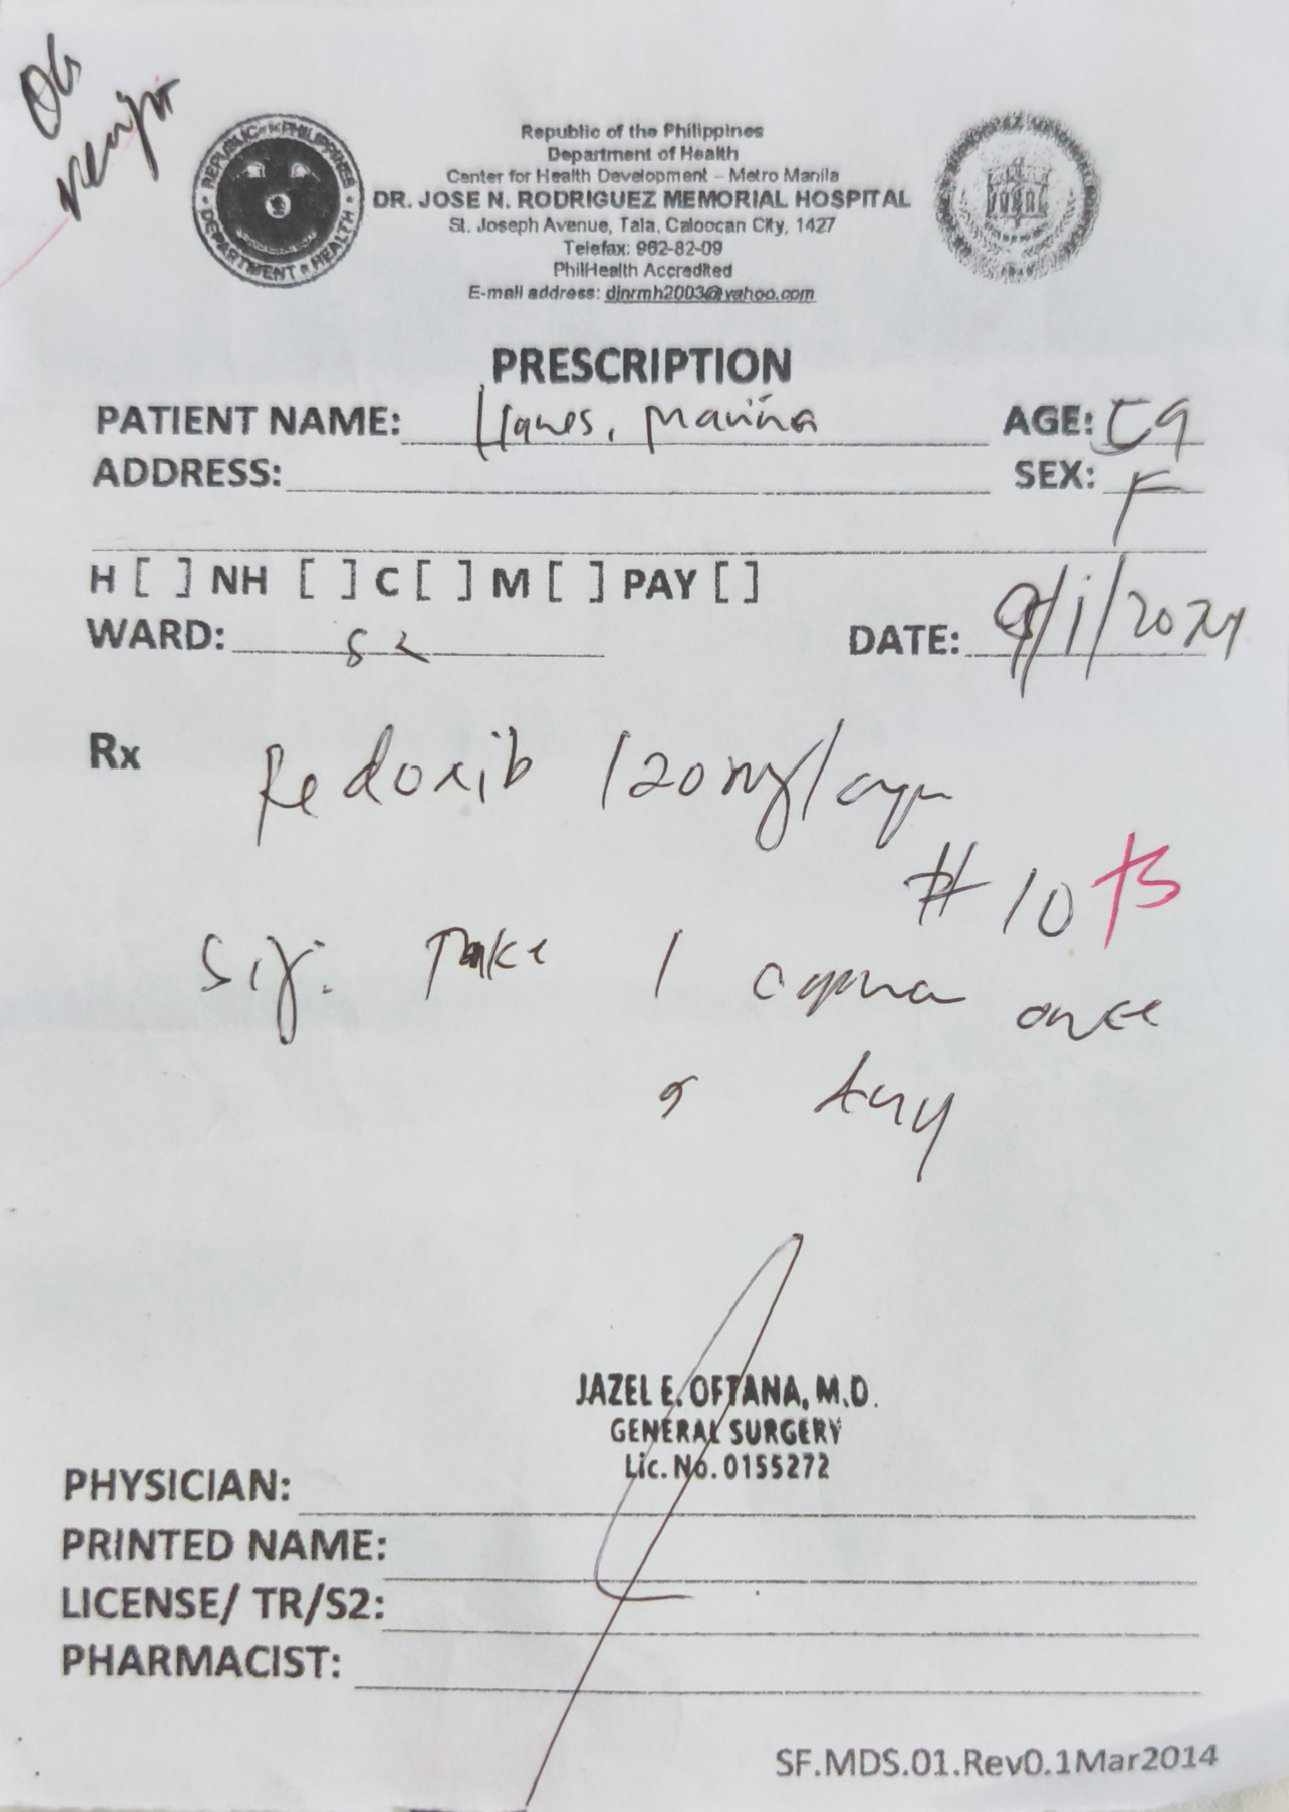 OG
REPUBLIC OF THE PHILIPPINES • DEPARTMENT OF HEALTH
Republic of the Philippines
Department of Health
Center for Health Development – Metro Manila
DR. JOSE N. RODRIGUEZ MEMORIAL HOSPITAL
St. Joseph Avenue, Tala, Caloocan City, 1427
Telefax: 962-82-09
PhilHealth Accredited
E-mail address: djnrmh2003@yahoo.com
PRESCRIPTION
PATIENT NAME: Llanes, Marina AGE: 59
ADDRESS: SEX: F
H [ ] NH [ ] C [ ] M [ ] PAY [ ]
WARD: S2 DATE: /1/2024
Rx Redoxib 120mg/cap
#10
Sig: Take 1 capsule once
a day
JAZEL E. OFTANA, M.D.
GENERAL SURGERY
Lic. No. 0155272
PHYSICIAN:
PRINTED NAME:
LICENSE/ TR/S2:
PHARMACIST:
SF.MDS.01.Rev0.1Mar2014